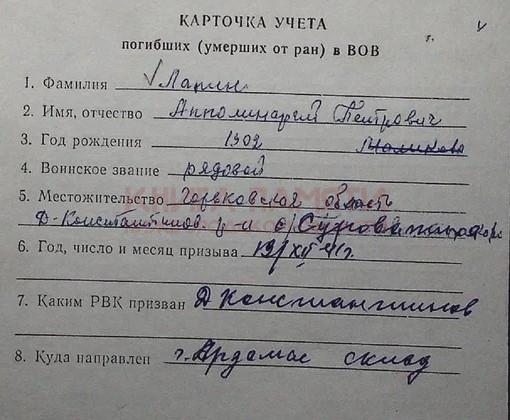 КАРТОЧКА УЧЕТА
погибших (умерших от ран) в ВОВ
1. Фамилия Лапин
2. Имя, отчество Апполинарий Петрович
3. Год рождения 1902
4. Воинское звание рядовой
КНИГА ПАМЯТИ
5. Местожительство Горьковская область
Д-Константинов р-н с/
6. Год, число и месяц призыва 19/XII 41 г.
7. Каким РВК призван Д Константинов
8. Куда направлен г. Ардамас склад